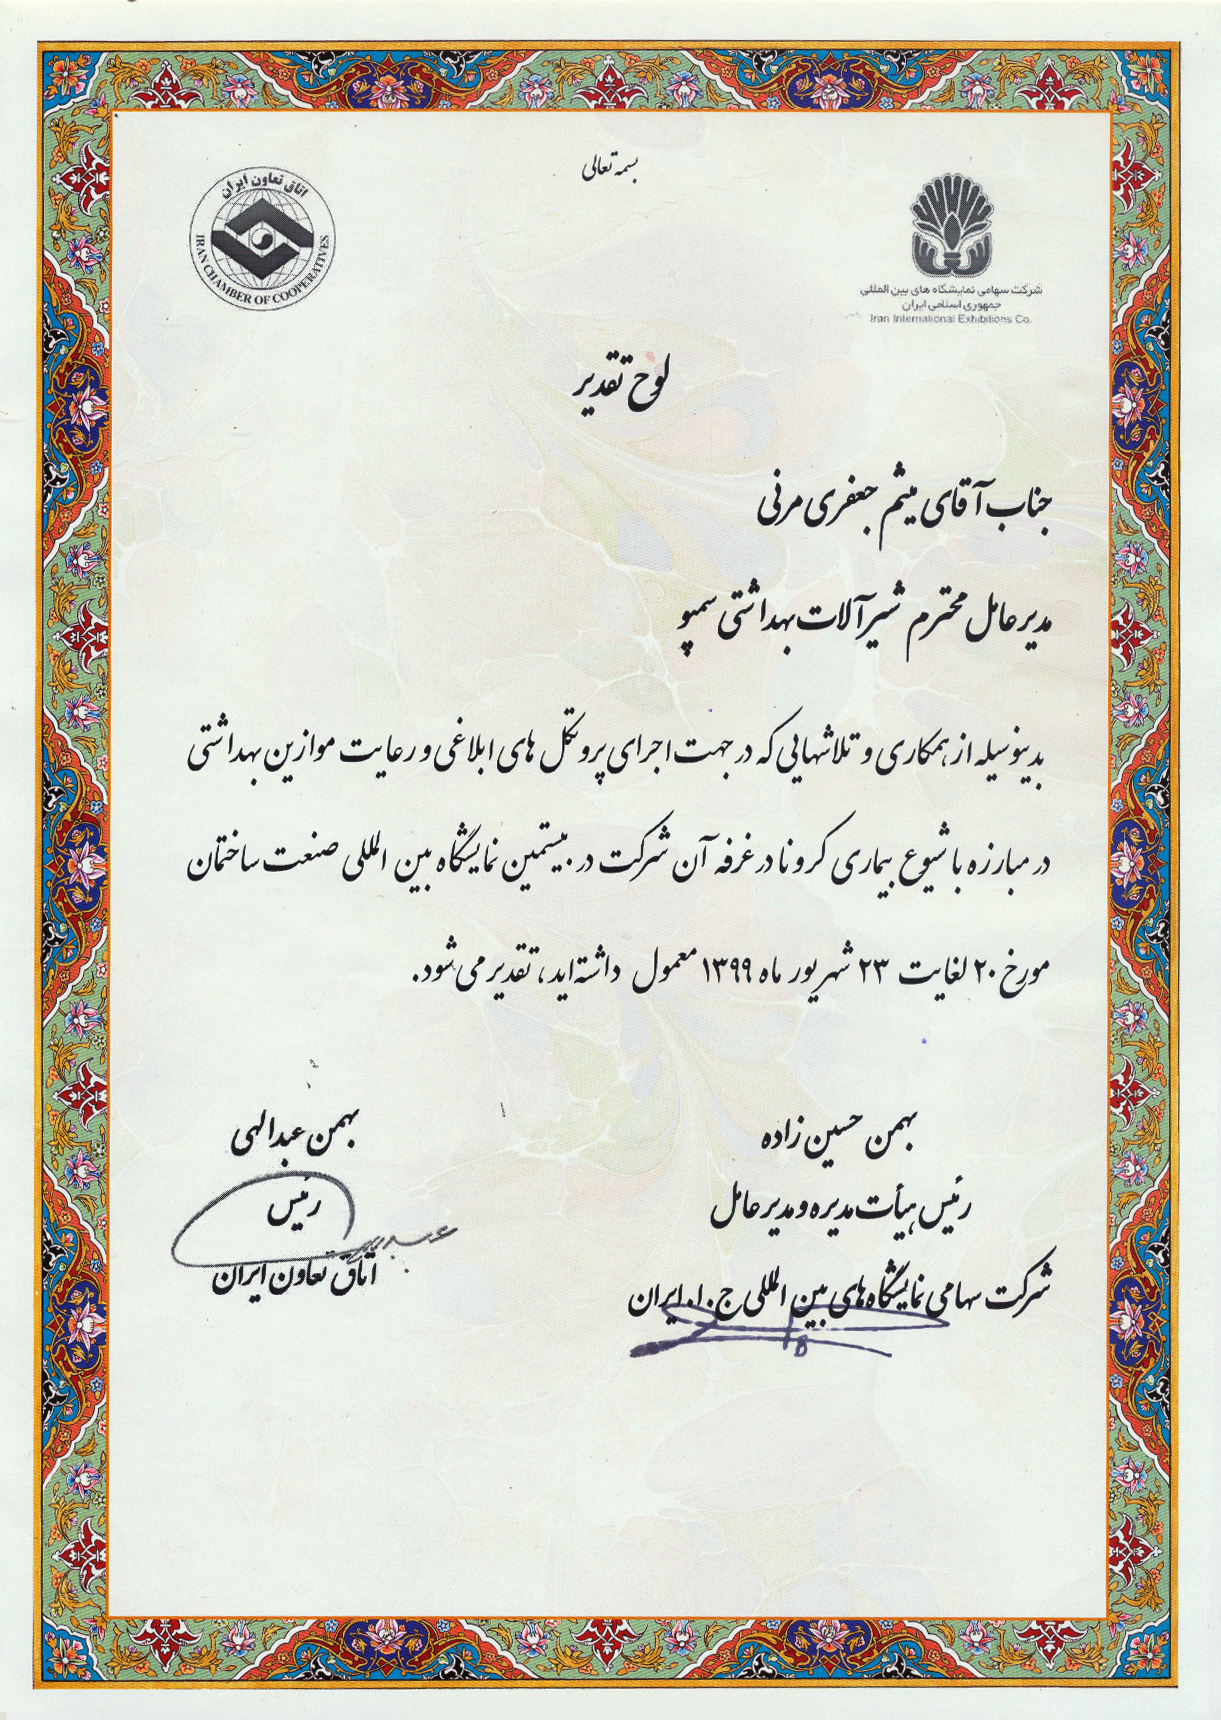 بسمه تعالی
اتاق تعاون ایران
IRAN CHAMBER OF COOPERATIVES
شرکت سهامی نمایشگاه های بین المللی
جمهوری اسلامی ایران
Iran International Exhibitions Co.
لوح تقدیر
جناب آقای میثم جعفری مرنی
مدیرعامل محترم شیرآلات بهداشتی سمپو
بدینوسیله از همکاری و تلاشهایی که در جهت اجرای پروتکل های ابلاغی و رعایت موازین بهداشتی
در مبارزه با شیوع بیماری کرونا در غرفه آن شرکت در بیستمین نمایشگاه بین المللی صنعت ساختمان
مورخ ۲۰ لغایت ۲۳ شهریور ماه ۱۳۹۹ معمول داشته اید، تقدیر می شود.
بهمن حسین زاده
رئیس هیأت مدیره و مدیرعامل
شرکت سهامی نمایشگاه های بین المللی ج.ا.ایران
بهمن عبدالهی
رئیس
اتاق تعاون ایران